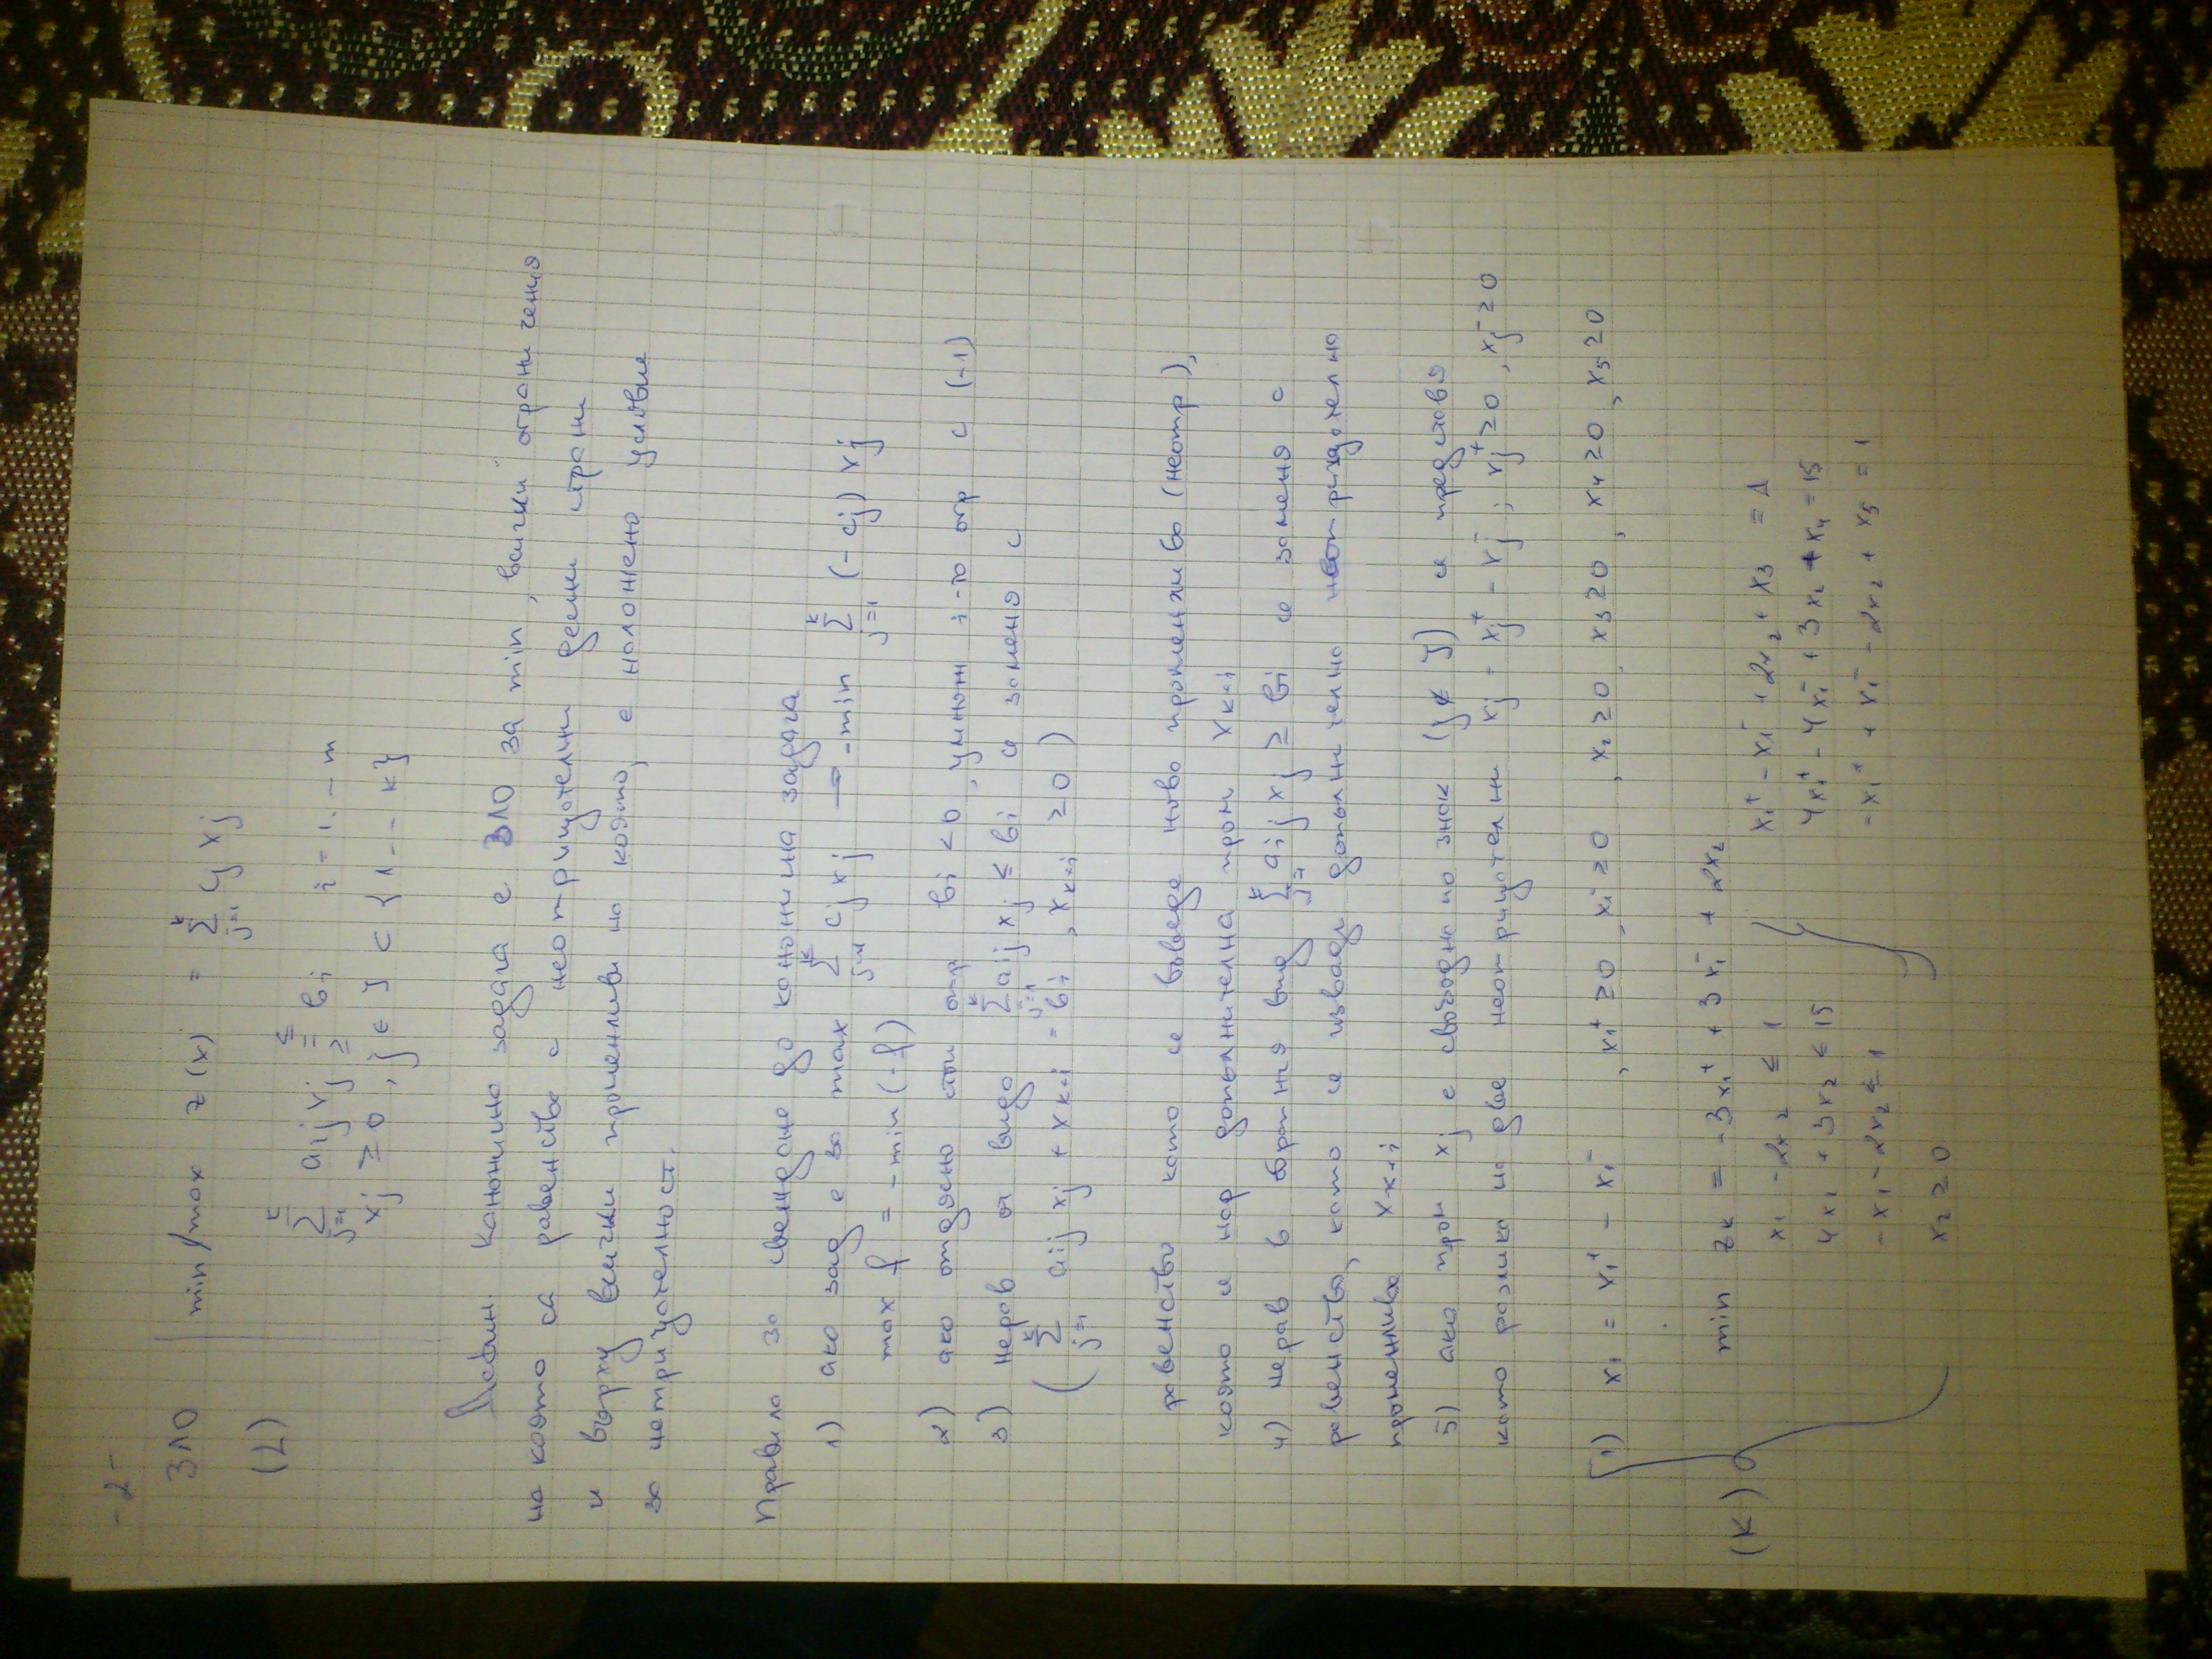 -2-
ЗЛО min/max z(x) = Σ_{j=1}^{k} cj xj
(L)
Σ_{j=1}^{k} aij xj ≤ = ≥ bi i = 1..m
xj ≥ 0, j ∈ J ⊂ {1...k}
Дефин. Канонична задача е ЗЛО за min, всички ограничения
на която са равенства с неотрицателни десни страни
и върху всички променливи на която, е наложено условие
за неотрицателност.
Правила за свеждане до канонична задача
1) ако зад е за max Σ_{j=1}^{k} cj xj → -min Σ_{j=1}^{k} (-cj) xj
max f = -min (-f)
2) ако отдясно стои отр bi < 0, умнож i-то огр с (-1)
3) нерав от вида Σ_{j=1}^{k} aij xj ≤ bi се заменя с
(Σ_{j=1}^{k} aij xj + xk+i = bi, xk+i ≥ 0)
равенство като се въвежда нова променлива (неотр),
която се нар допълнителна пром xk+i
4) нерав в обратния вид Σ_{j=1}^{k} aij xj ≥ bi се заменя с
равенство, като се изважда допълнителна неотрицателно
променлива xk+i
5) ако пром xj е свободна по знак (j ∉ J) се представя
като разлика на две неотрицателни xj = xj⁺ - xj⁻; xj⁺ ≥ 0, xj⁻ ≥ 0
1) x1 = x1⁺ - x1⁻, x1⁺ ≥ 0, x1⁻ ≥ 0, x2 ≥ 0, x3 ≥ 0, x4 ≥ 0, x5 ≥ 0
(K) min zk = -3x1⁺ + 3x1⁻ + 2x2
x1 - 2x2 ≤ 1 x1⁺ - x1⁻ + 2x2 + x3 = 1
4x1 + 3x2 ≤ 15 4x1⁺ - 4x1⁻ + 3x2 + x4 = 15
-x1 - 2x2 ≤ 1 -x1⁺ + x1⁻ - 2x2 + x5 = 1
x2 ≥ 0